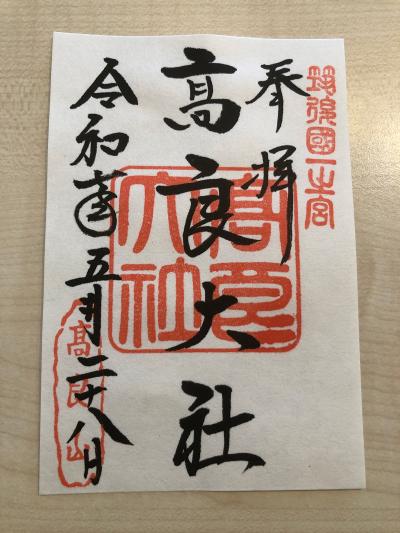 筑後國一之宮
奉拝
高良大社
高良大社
令和 五月二十八日
髙良山